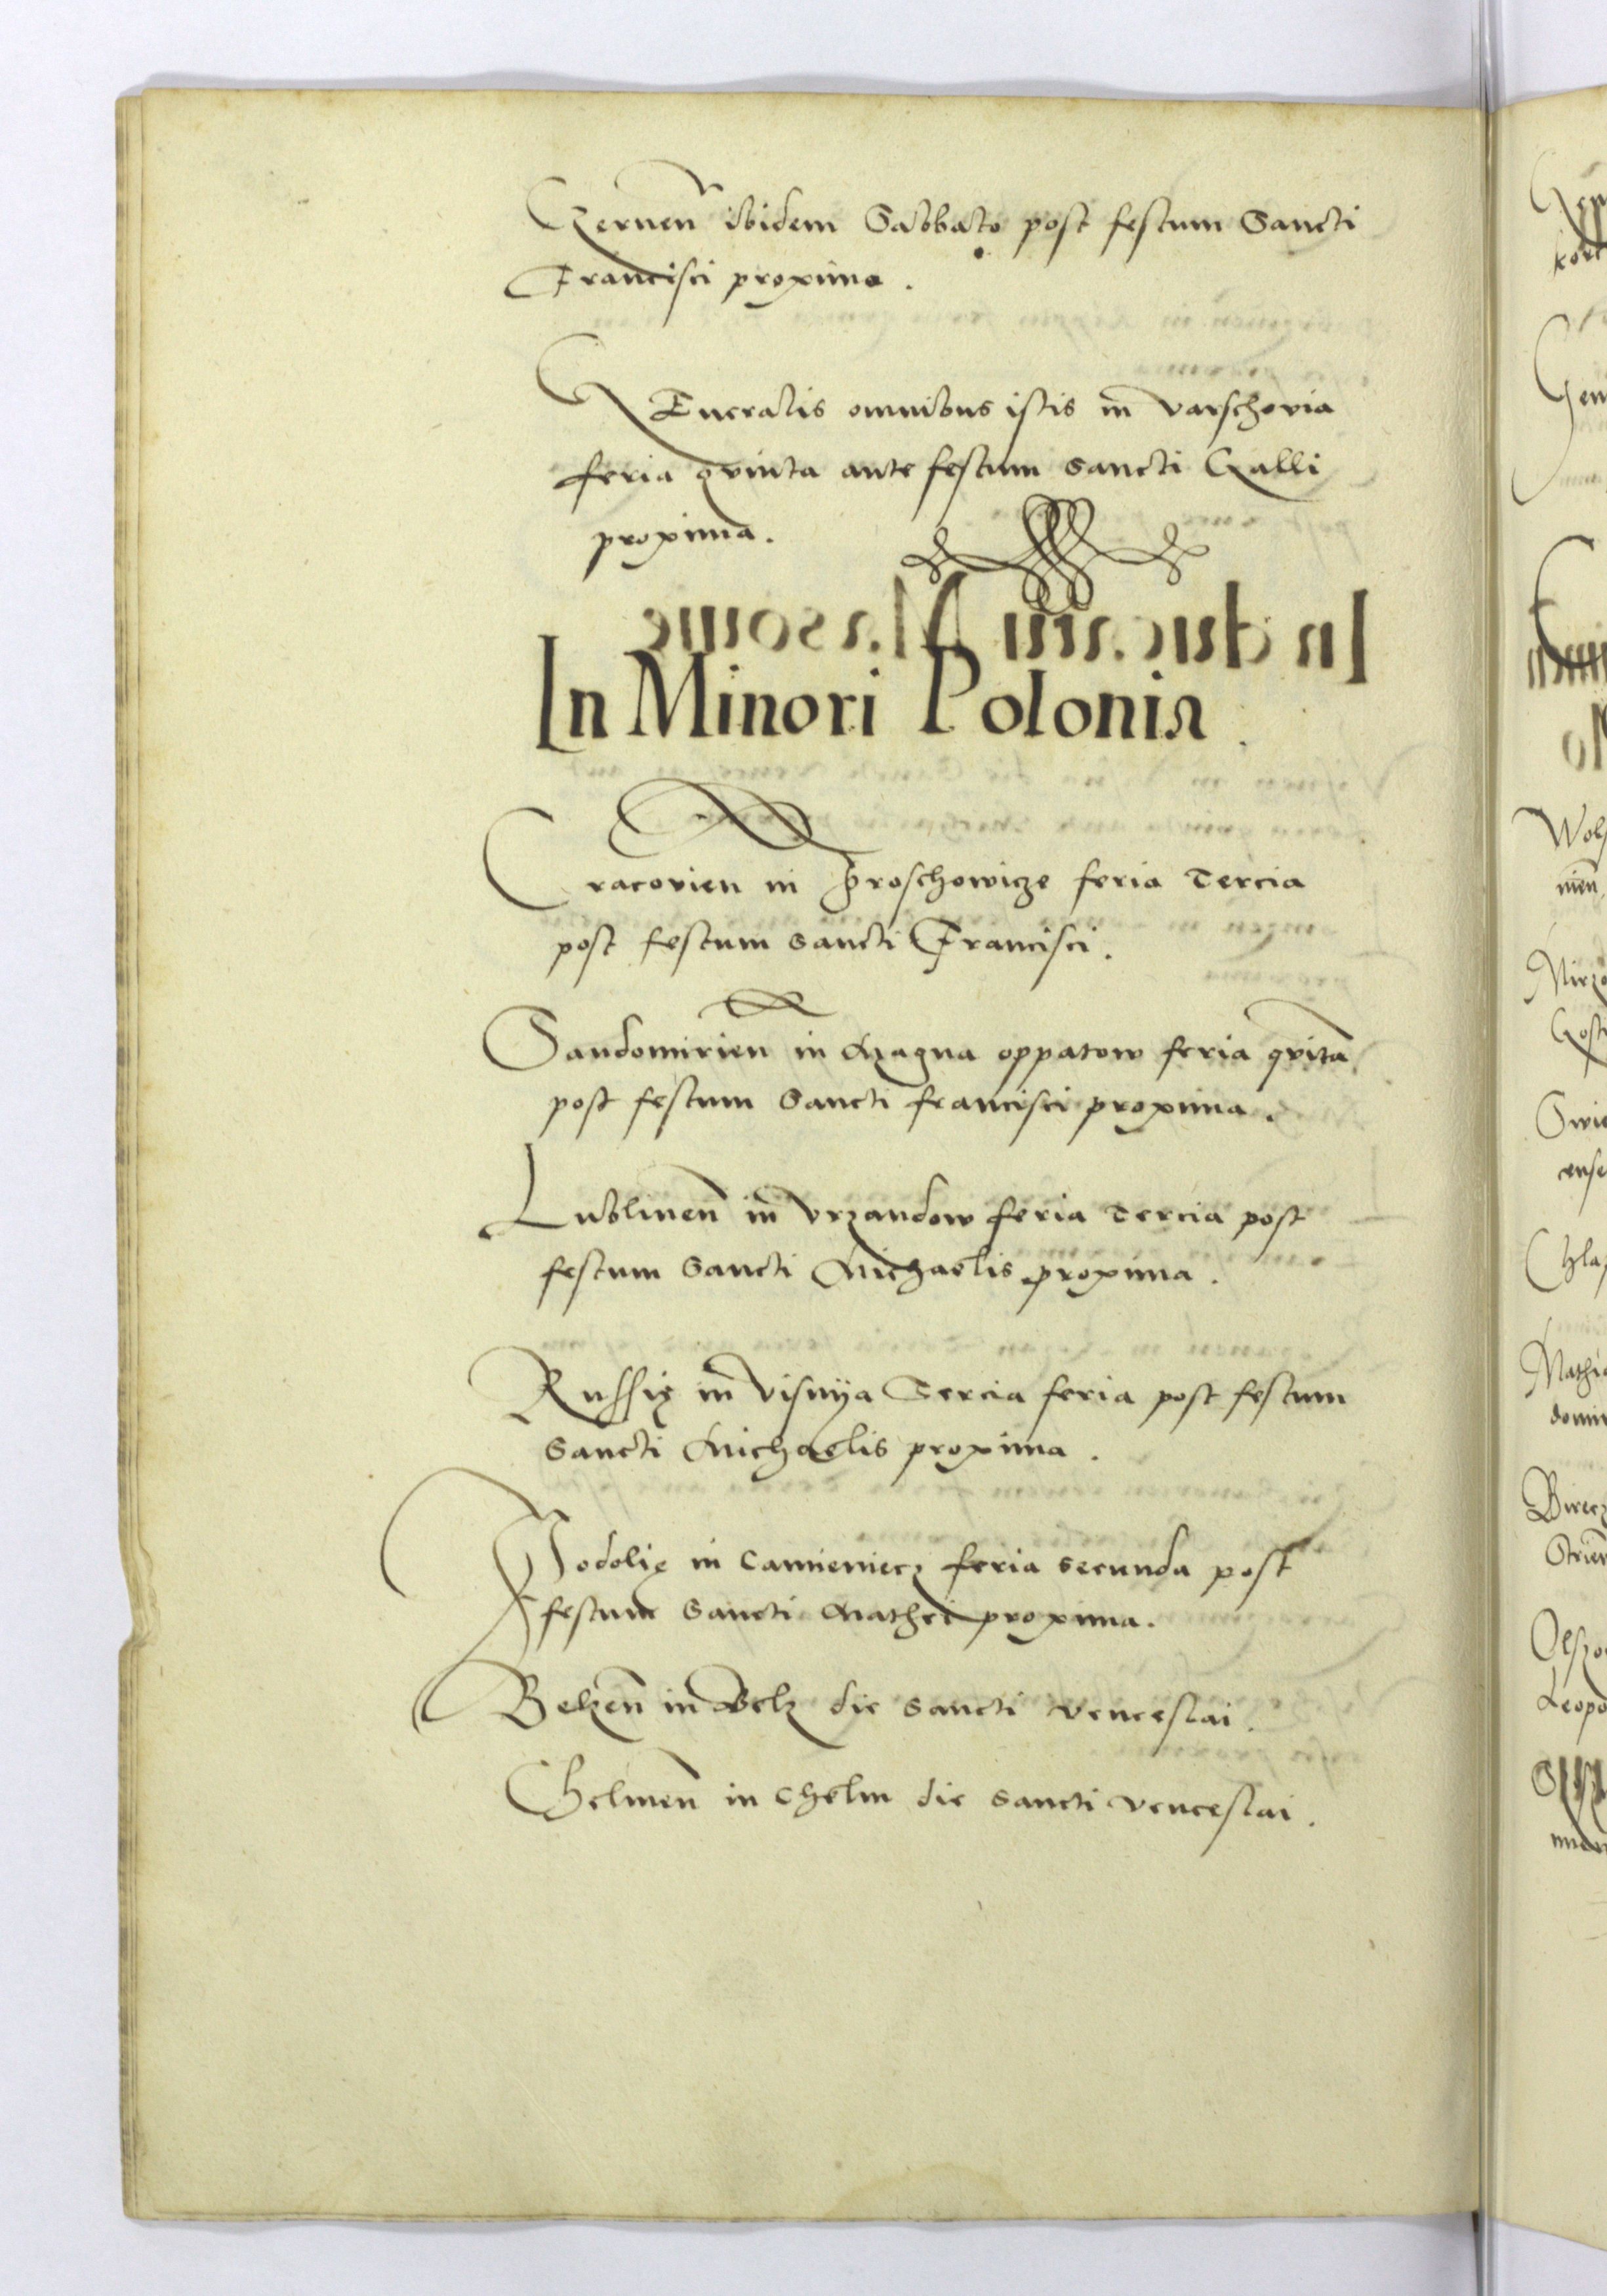 Czernen ibidem Sabbato post festum Sancti
Francisci proximo.
GEneralis omnibus istis in varschovia
feria qvinta ante festum sancti Galli
proxima.
In Minori Polonia.
Cracovien in Proschowicze feria Tercia
post festum sancti Francisci.
Sandomirien in Magna oppatow feria qvīta
post festum Sancti francisci proxima.
Lublinen̄ in vrzandow feria Tercia post
festum Sancti Michaelis proxima.
Russię in visnya Tercia feria post festum
Sancti Michaelis proxima.
Podolię in Camieniecz feria secunda post
festum Sancti Mathei proxima.
Belzen̄ in Belz die sancti venceslai.
Chelmen̄ in Chelm die sancti venceslai.